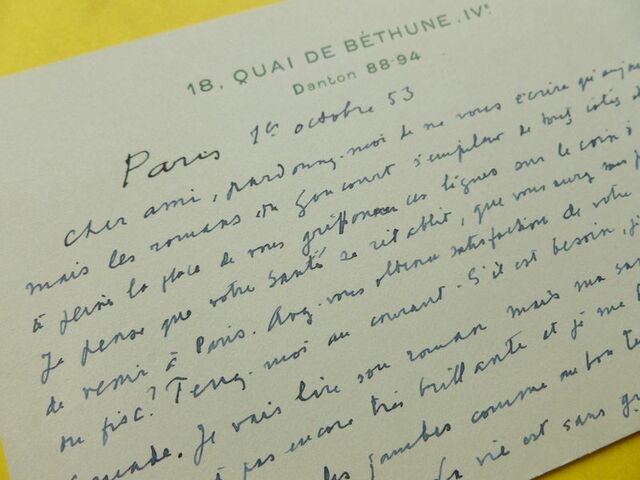 18, QUAI DE BÉTHUNE. IVᵉ
Danton 88-94
Paris 1er octobre 53
Cher ami, pardonnez-moi de ne vous écrire qu'aujou
mais les romans du Goncourt s'empilent de tous côtés et
à peine la place de vous griffonner ces lignes sur le coin
Je pense que votre santé se rétablit, que vous aurez
de venir à Paris. Avez-vous obtenu satisfaction de votre
du fisc? Tenez-moi au courant. S'il est besoin, j
Je vais lire son roman mais ma san
pas encore très brillante et je me
jambes comme au bon te
vie est sans